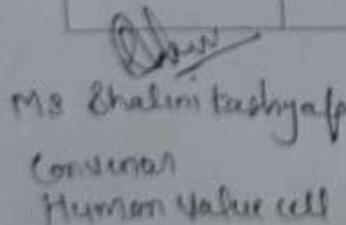 Ms Shalini Kashyap
Convenar
Human Value cell